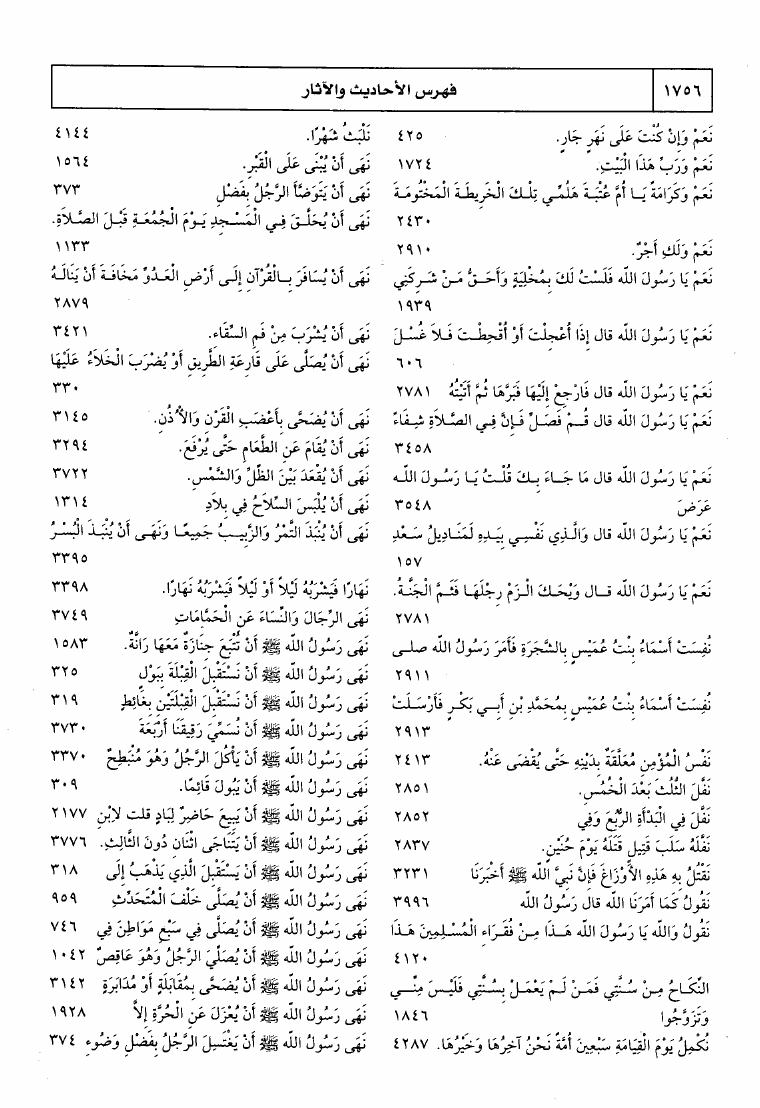 ١٧٥٦
فهرس الأحاديث والآثار
نَعَمْ وَإِنْ كُنْتَ عَلَى نَهَرٍ جَارٍ. ٤٢٥
نَعَمْ وَرَبِّ هَذَا الْبَيْتِ. ١٧٢٤
نَعَمْ وَكَرَامَةً يَا أُمَّ عُتْبَةَ هَلُمِّي تِلْكَ الْخَرِيطَةَ الْمَخْتُومَةَ
٢٤٣٠
نَعَمْ وَلَكِ أَجْرٌ. ٢٩١٠
نَعَمْ يَا رَسُولَ اللَّه فَلَسْتُ لَكَ بِمُخْلِيَةٍ وَأَحَقُّ مَنْ شَرِكَنِي
١٩٣٩
نَعَمْ يَا رَسُولَ اللَّه قال إِذَا أُعْجِلْتَ أَوْ أُقْحِطْتَ فَلاَ غُسْلَ
٦٠٦
نَعَمْ يَا رَسُولَ اللَّه قال فَارْجِعْ إِلَيْهَا فَبَرَّهَا ثُمَّ أَتَيْتُهُ ٢٧٨١
نَعَمْ يَا رَسُولَ اللَّه قال قُمْ فَصَلِّ فَإِنَّ فِي الصَّلاَةِ شِفَاءً
٣٤٥٨
نَعَمْ يَا رَسُولَ اللَّه قال مَا جَاءَ بِكَ قُلْتُ يَا رَسُولَ اللَّه
عَرَضَ ٣٥٤٨
نَعَمْ يَا رَسُولَ اللَّه قال وَالَّذِي نَفْسِي بِيَدِهِ لَمَنَادِيلُ سَعْدِ
١٥٧
نَعَمْ يَا رَسُولَ اللَّه قال وَيْحَكَ الْزَمْ رِجْلَهَا فَثَمَّ الْجَنَّةُ.
٢٧٨١
نُفِسَتْ أَسْمَاءُ بِنْتُ عُمَيْسٍ بِالشَّجَرَةِ فَأَمَرَ رَسُولُ اللَّه صلى
٢٩١١
نُفِسَتْ أَسْمَاءُ بِنْتُ عُمَيْسٍ بِمُحَمَّدِ بْنِ أَبِي بَكْرٍ فَأَرْسَلَتْ
٢٩١٣
نَفْسُ الْمُؤْمِنِ مُعَلَّقَةٌ بِدَيْنِهِ حَتَّى يُقْضَى عَنْهُ. ٢٤١٣
نَفَّلَ الثُّلُثَ بَعْدَ الْخُمُسِ. ٢٨٥١
نَفَّلَ فِي الْبَدْأَةِ الرُّبُعَ وَفِي ٢٨٥٢
نَفَّلَهُ سَلَبَ قَتِيلٍ قَتَلَهُ يَوْمَ حُنَيْنٍ. ٢٨٣٧
نَقْتُلُ بِهِ هَذِهِ الأَوْزَاغَ فَإِنَّ نَبِيَّ اللَّه ﷺ أَخْبَرَنَا ٣٢٣١
نَقُولُ كَمَا أَمَرَنَا اللَّه قال رَسُولُ اللَّه ٣٩٩٦
نَقُولُ وَاللَّه يَا رَسُولَ اللَّه هَذَا مِنْ فُقَرَاءِ الْمُسْلِمِينَ هَذَا
٤١٢٠
النِّكَاحُ مِنْ سُنَّتِي فَمَنْ لَمْ يَعْمَلْ بِسُنَّتِي فَلَيْسَ مِنِّي
وَتَزَوَّجُوا ١٨٤٦
نُكْمِلُ يَوْمَ الْقِيَامَةِ سَبْعِينَ أُمَّةً نَحْنُ آخِرُهَا وَخَيْرُهَا. ٤٢٨٧
نَلْبَثُ شَهْرًا. ٤١٤٤
نَهَى أَنْ يُبْنَى عَلَى الْقَبْرِ. ١٥٦٤
نَهَى أَنْ يَتَوَضَّأَ الرَّجُلُ بِفَضْلِ ٣٧٣
نَهَى أَنْ يُحَلَّقَ فِي الْمَسْجِدِ يَوْمَ الْجُمُعَةِ قَبْلَ الصَّلاَةِ.
١١٣٣
نَهَى أَنْ يُسَافَرَ بِالْقُرْآنِ إِلَى أَرْضِ الْعَدُوِّ مَخَافَةَ أَنْ يَنَالَهُ
٢٨٧٩
نَهَى أَنْ يُشْرَبَ مِنْ فَمِ السِّقَاءِ. ٣٤٢١
نَهَى أَنْ يُصَلَّى عَلَى قَارِعَةِ الطَّرِيقِ أَوْ يُضْرَبَ الْخَلاَءُ عَلَيْهَا
٣٣٠
نَهَى أَنْ يُضَحَّى بِأَعْضَبِ الْقَرْنِ وَالأُذُنِ. ٣١٤٥
نَهَى أَنْ يُقَامَ عَنِ الطَّعَامِ حَتَّى يُرْفَعَ. ٣٢٩٤
نَهَى أَنْ يُقْعَدَ بَيْنَ الظِّلِّ وَالشَّمْسِ. ٣٧٢٢
نَهَى أَنْ يُلْبَسَ السِّلاَحُ فِي بِلاَدِ ١٣١٤
نَهَى أَنْ يُنْبَذَ التَّمْرُ وَالزَّبِيبُ جَمِيعًا وَنَهَى أَنْ يُنْبَذَ الْبُسْرُ
٣٣٩٥
نَهَارًا فَيَشْرَبُهُ لَيْلاً أَوْ لَيْلاً فَيَشْرَبُهُ نَهَارًا. ٣٣٩٨
نَهَى الرِّجَالَ وَالنِّسَاءَ عَنِ الْحَمَّامَاتِ ٣٧٤٩
نَهَى رَسُولُ اللَّه ﷺ أَنْ تُتْبَعَ جِنَازَةٌ مَعَهَا رَانَّةٌ. ١٥٨٣
نَهَى رَسُولُ اللَّه ﷺ أَنْ نَسْتَقْبِلَ الْقِبْلَةَ بِبَوْلٍ ٣٢٥
نَهَى رَسُولُ اللَّه ﷺ أَنْ نَسْتَقْبِلَ الْقِبْلَتَيْنِ بِغَائِطٍ ٣١٩
نَهَى رَسُولُ اللَّه ﷺ أَنْ نُسَمِّيَ رَقِيقَنَا أَرْبَعَةَ ٣٧٣٠
نَهَى رَسُولُ اللَّه ﷺ أَنْ يَأْكُلَ الرَّجُلُ وَهُوَ مُنْبَطِحٌ ٣٣٧٠
نَهَى رَسُولُ اللَّه ﷺ أَنْ يَبُولَ قَائِمًا. ٣٠٩
نَهَى رَسُولُ اللَّه ﷺ أَنْ يَبِيعَ حَاضِرٌ لِبَادٍ قلت لابْنِ ٢١٧٧
نَهَى رَسُولُ اللَّه ﷺ أَنْ يَتَنَاجَى اثْنَانِ دُونَ الثَّالِثِ. ٣٧٧٦
نَهَى رَسُولُ اللَّه ﷺ أَنْ يَسْتَقْبِلَ الَّذِي يَذْهَبُ إِلَى ٣١٨
نَهَى رَسُولُ اللَّه ﷺ أَنْ يُصَلَّى خَلْفَ الْمُتَحَدِّثِ ٩٥٩
نَهَى رَسُولُ اللَّه ﷺ أَنْ يُصَلَّى فِي سَبْعِ مَوَاطِنَ فِي ٧٤٦
نَهَى رَسُولُ اللَّه ﷺ أَنْ يُصَلِّيَ الرَّجُلُ وَهُوَ عَاقِصٌ ١٠٤٢
نَهَى رَسُولُ اللَّه ﷺ أَنْ يُضَحَّى بِمُقَابَلَةٍ أَوْ مُدَابَرَةٍ ٣١٤٢
نَهَى رَسُولُ اللَّه ﷺ أَنْ يُعْزَلَ عَنِ الْحُرَّةِ إِلاَّ ١٩٢٨
نَهَى رَسُولُ اللَّه ﷺ أَنْ يَغْتَسِلَ الرَّجُلُ بِفَضْلِ وَضُوءِ ٣٧٤